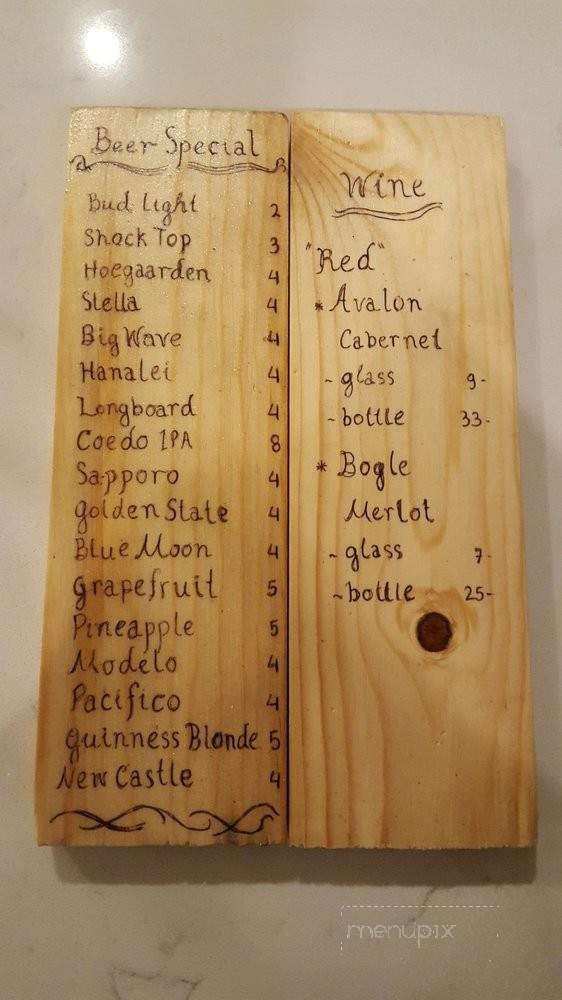 Beer Special
Bud Light 2
Shock Top 3
Hoegaarden 4
Stella 4
Big Wave 4
Hanalei 4
Longboard 4
Coedo IPA 8
Sapporo 4
Golden State 4
Blue Moon 4
Grapefruit 5
Pineapple 5
Modelo 4
Pacifico 4
Guinness Blonde 5
New Castle 4
Wine
"Red"
* Avalon
Cabernet
~ glass 9-
~ bottle 33-
* Bogle
Merlot
~ glass 7-
~ bottle 25-
menupix